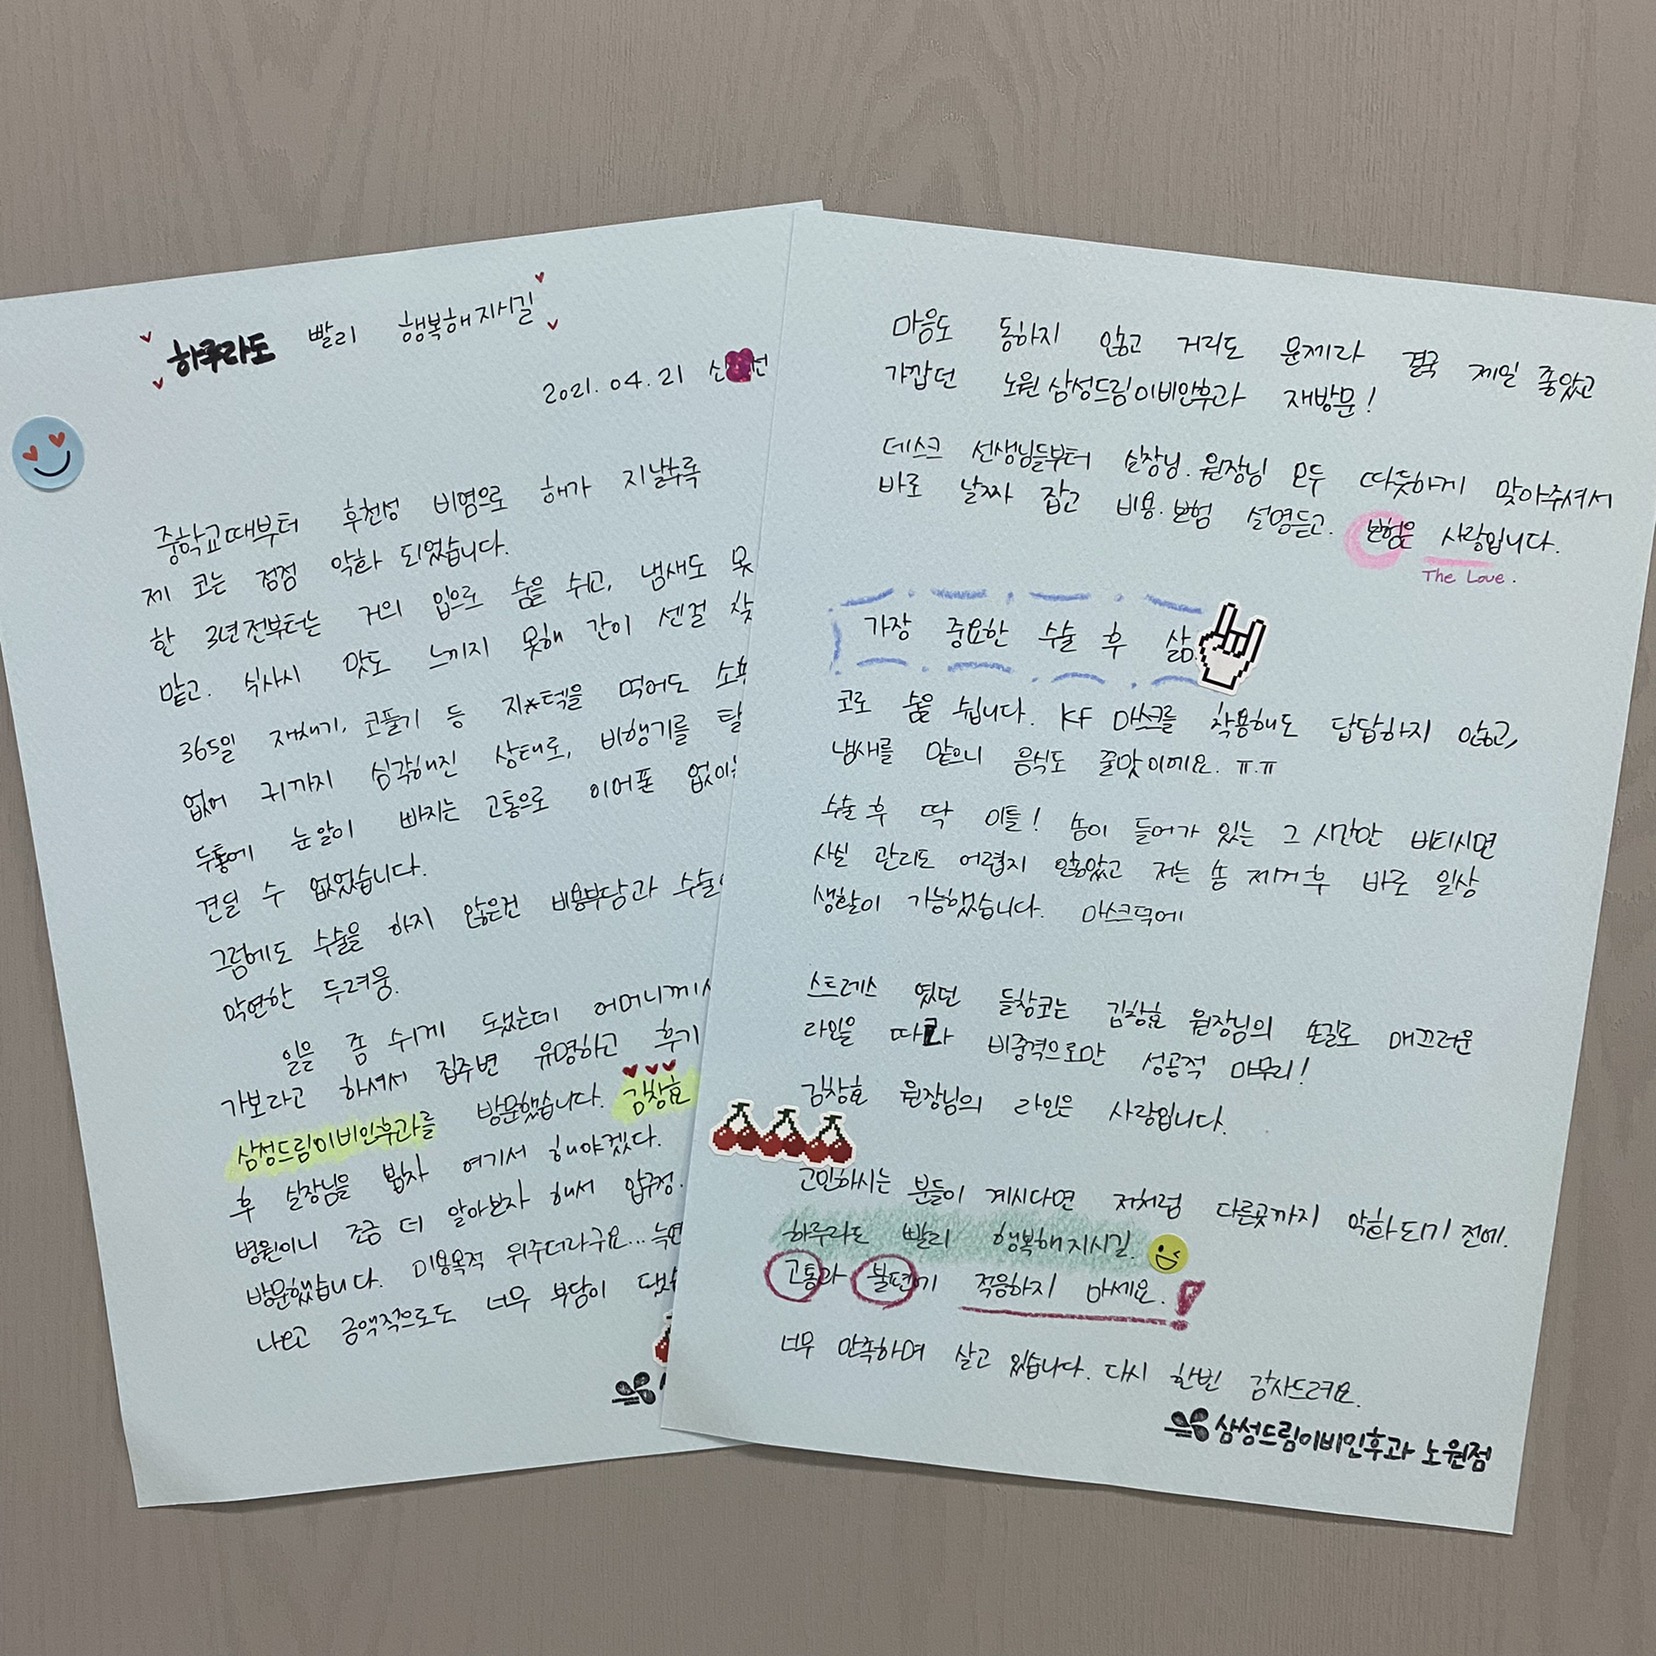 하루라도 빨리 행복해지시길
2021. 04. 21
중학교때부터 후천성 비염으로 해가 지날수록
제 코는 점점 악화 되었습니다.
한 3년전부터는 거의 입으로 숨을 쉬고, 냄새도 못
맡고. 식사시 맛도 느끼지 못해 간이 센걸 찾
365일 재채기, 코풀기 등 지*텍을 먹어도
없어 귀까지 심각해진 상태로, 비행기를 탈
두통에 눈알이 빠지는 고통으로 이어폰 없이는
견딜 수 없었습니다.
그럼에도 수술을 하지 않은건 비용부담과
막연한 두려움.
일을 좀 쉬게 됐는데 어머니께서
가보라고 하셔서 집주변 유명하고 후기
삼성드림이비인후과를 방문했습니다. 김창효
후 실장님을 뵙자 여기서 해야겠다.
병원이니 조금 더 알아보자 해서 압구정.
방문했습니다. 미용목적 위주더라구요...
나오고 금액적으로도 너무 부담이
마음도 동하지 않고 거리도 문제라 결국 제일 좋았고
가깝던 노원 삼성드림이비인후과 재방문!
데스크 선생님들부터 실장님. 원장님 모두 따뜻하게 맞아주셔서
바로 날짜 잡고 비용.보험 설명듣고. 보험은 사랑입니다.
The Love.
가장 중요한 수술 후 삶.
코로 숨을 쉽니다. KF 마스크를 착용해도 답답하지 않고,
냄새를 맡으니 음식도 꿀맛이에요. ㅠ.ㅠ
수술 후 딱 이틀! 솜이 들어가 있는 그 시간만 버티시면
사실 관리도 어렵지 않았고 저는 솜 제거후 바로 일상
생활이 가능했습니다. 마스크덕에
스트레스 였던 들창코는 김창효 원장님의 손길로 매끄러운
라인을 따라 비중격으로만 성공적 마무리!
김창효 원장님의 라인은 사랑입니다.
고민하시는 분들이 계시다면 저처럼 다른곳까지 악화되기 전에.
하루라도 빨리 행복해지시길.
고통과 불편에 적응하지 마세요.!
너무 만족하며 살고 있습니다. 다시 한번 감사드려요.
삼성드림이비인후과 노원점